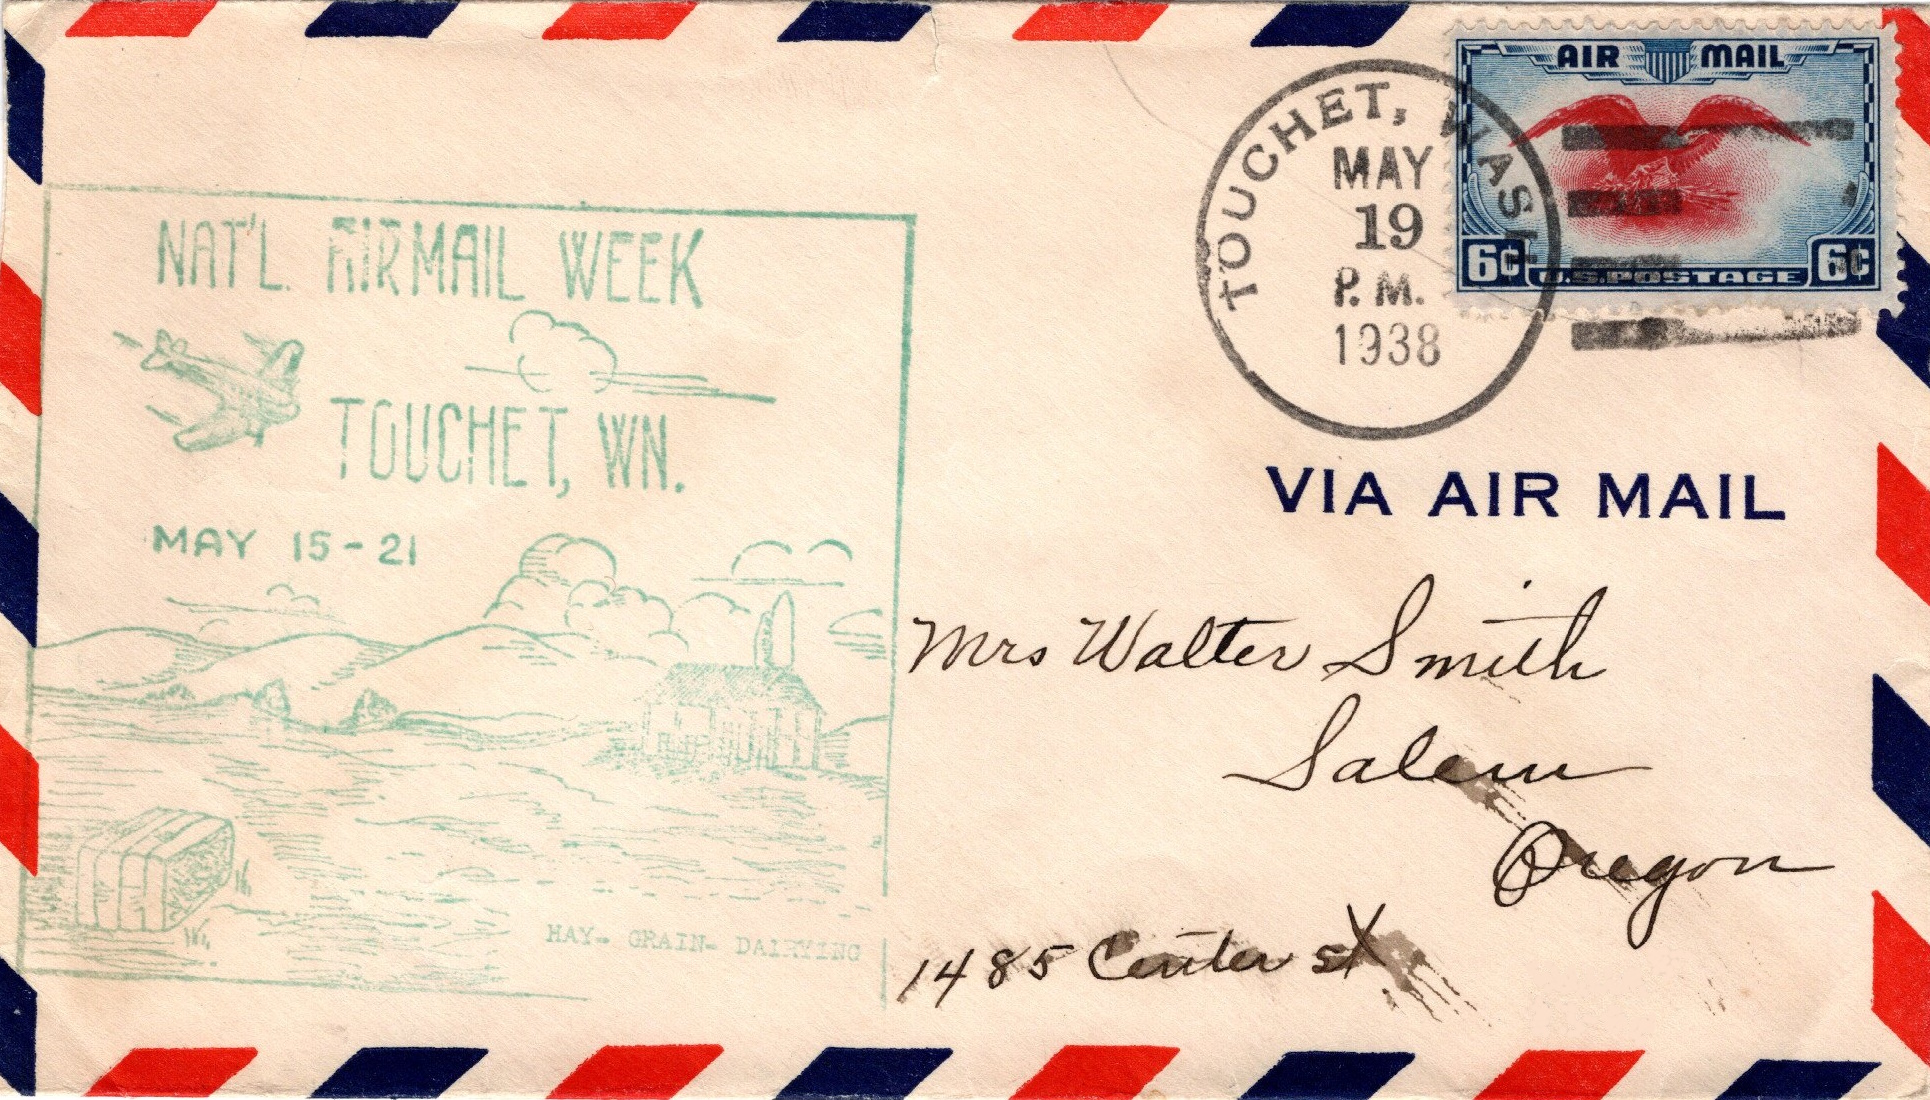 NAT'L. AIRMAIL WEEK
TOUCHET, WN.
MAY 15-21
HAY- GRAIN- DAIRYING
TOUCHET, WASH.
MAY
19
P. M.
1938
AIR MAIL
6¢ U.S. POSTAGE 6¢
VIA AIR MAIL
Mrs Walter Smith
Salem
Oregon
1485 Center st